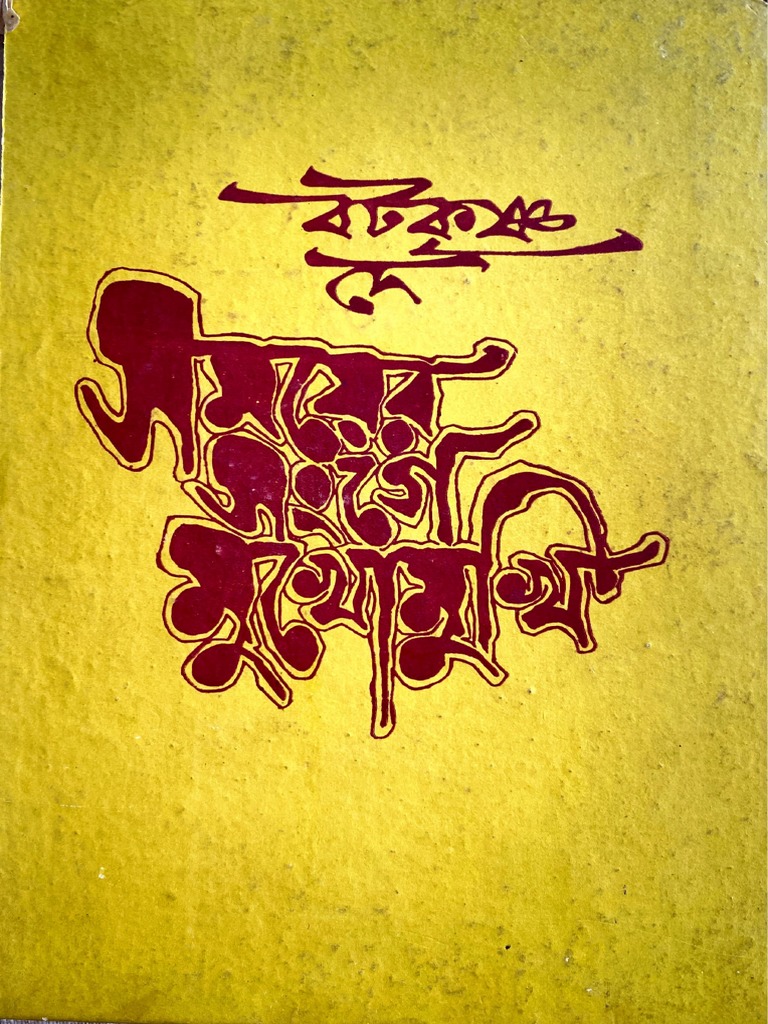 বটকৃষ্ণ
দে
সময়ের
সংগে
মুখোমুখি